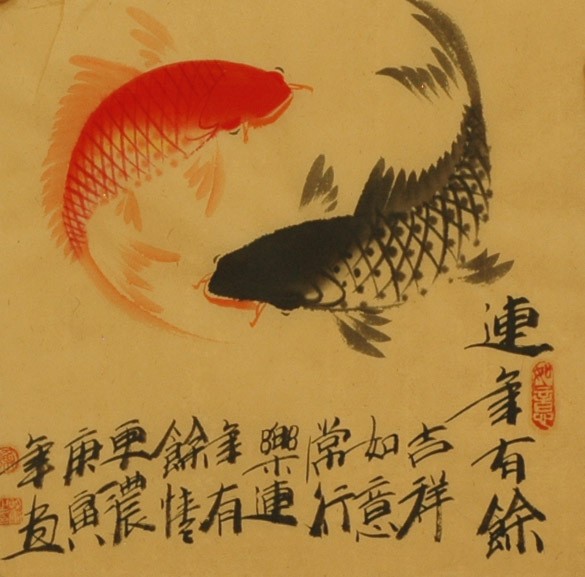 連年有餘
如意
吉祥
如意
常行
樂連
年有
餘情
更濃
庚寅
年畫